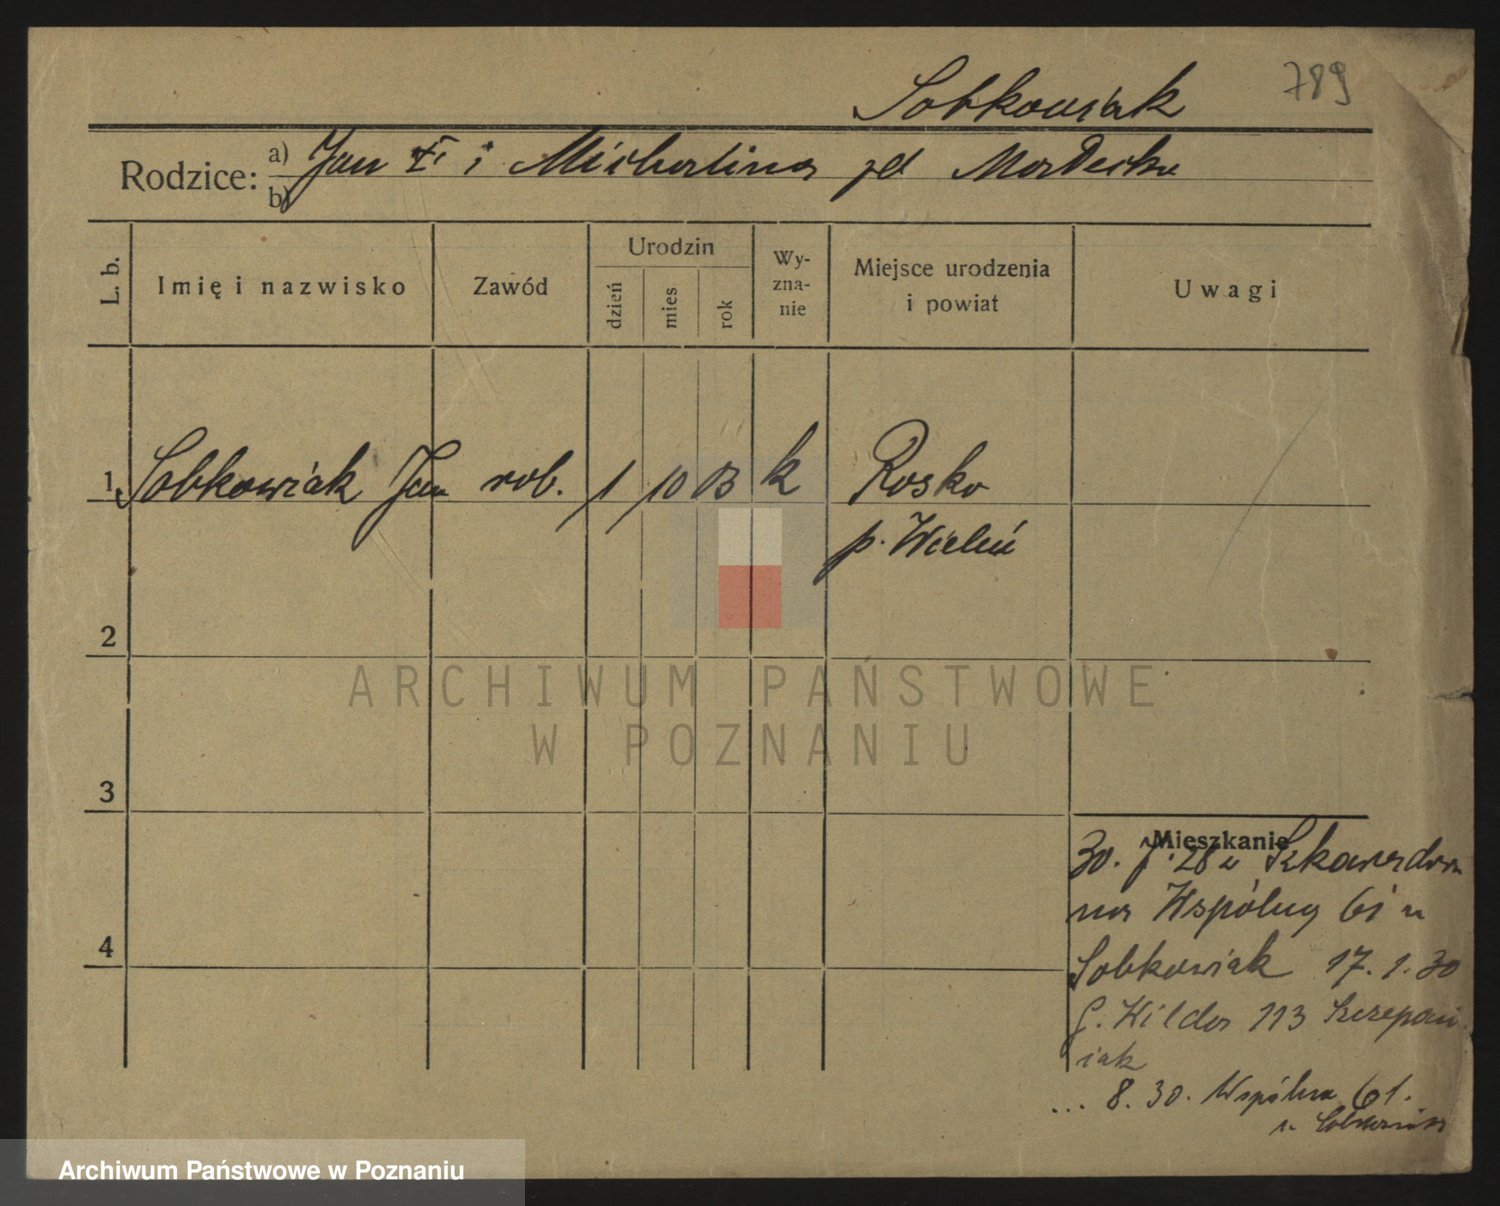 789
Sobkowiak
Rodzice: a) Jan i Michalina zd
b)
L. b.
Imię i nazwisko
Zawód
Urodzin
dzień
mies
rok
Wy-
zna-
nie
Miejsce urodzenia
i powiat
Uwagi
1 Sobkowiak Jan rob. 1 10 03 k Rosko
p. Wieluń
2
3
4
Mieszkanie
30. 28 u
na Wspólną 61 u
Sobkowiak 17.1.30
G. Wilda 113 Szczepan
iak
8.30. Wspólna 61.
u Sobkowiak
ARCHIWUM PAŃSTWOWE
W POZNANIU
Archiwum Państwowe w Poznaniu